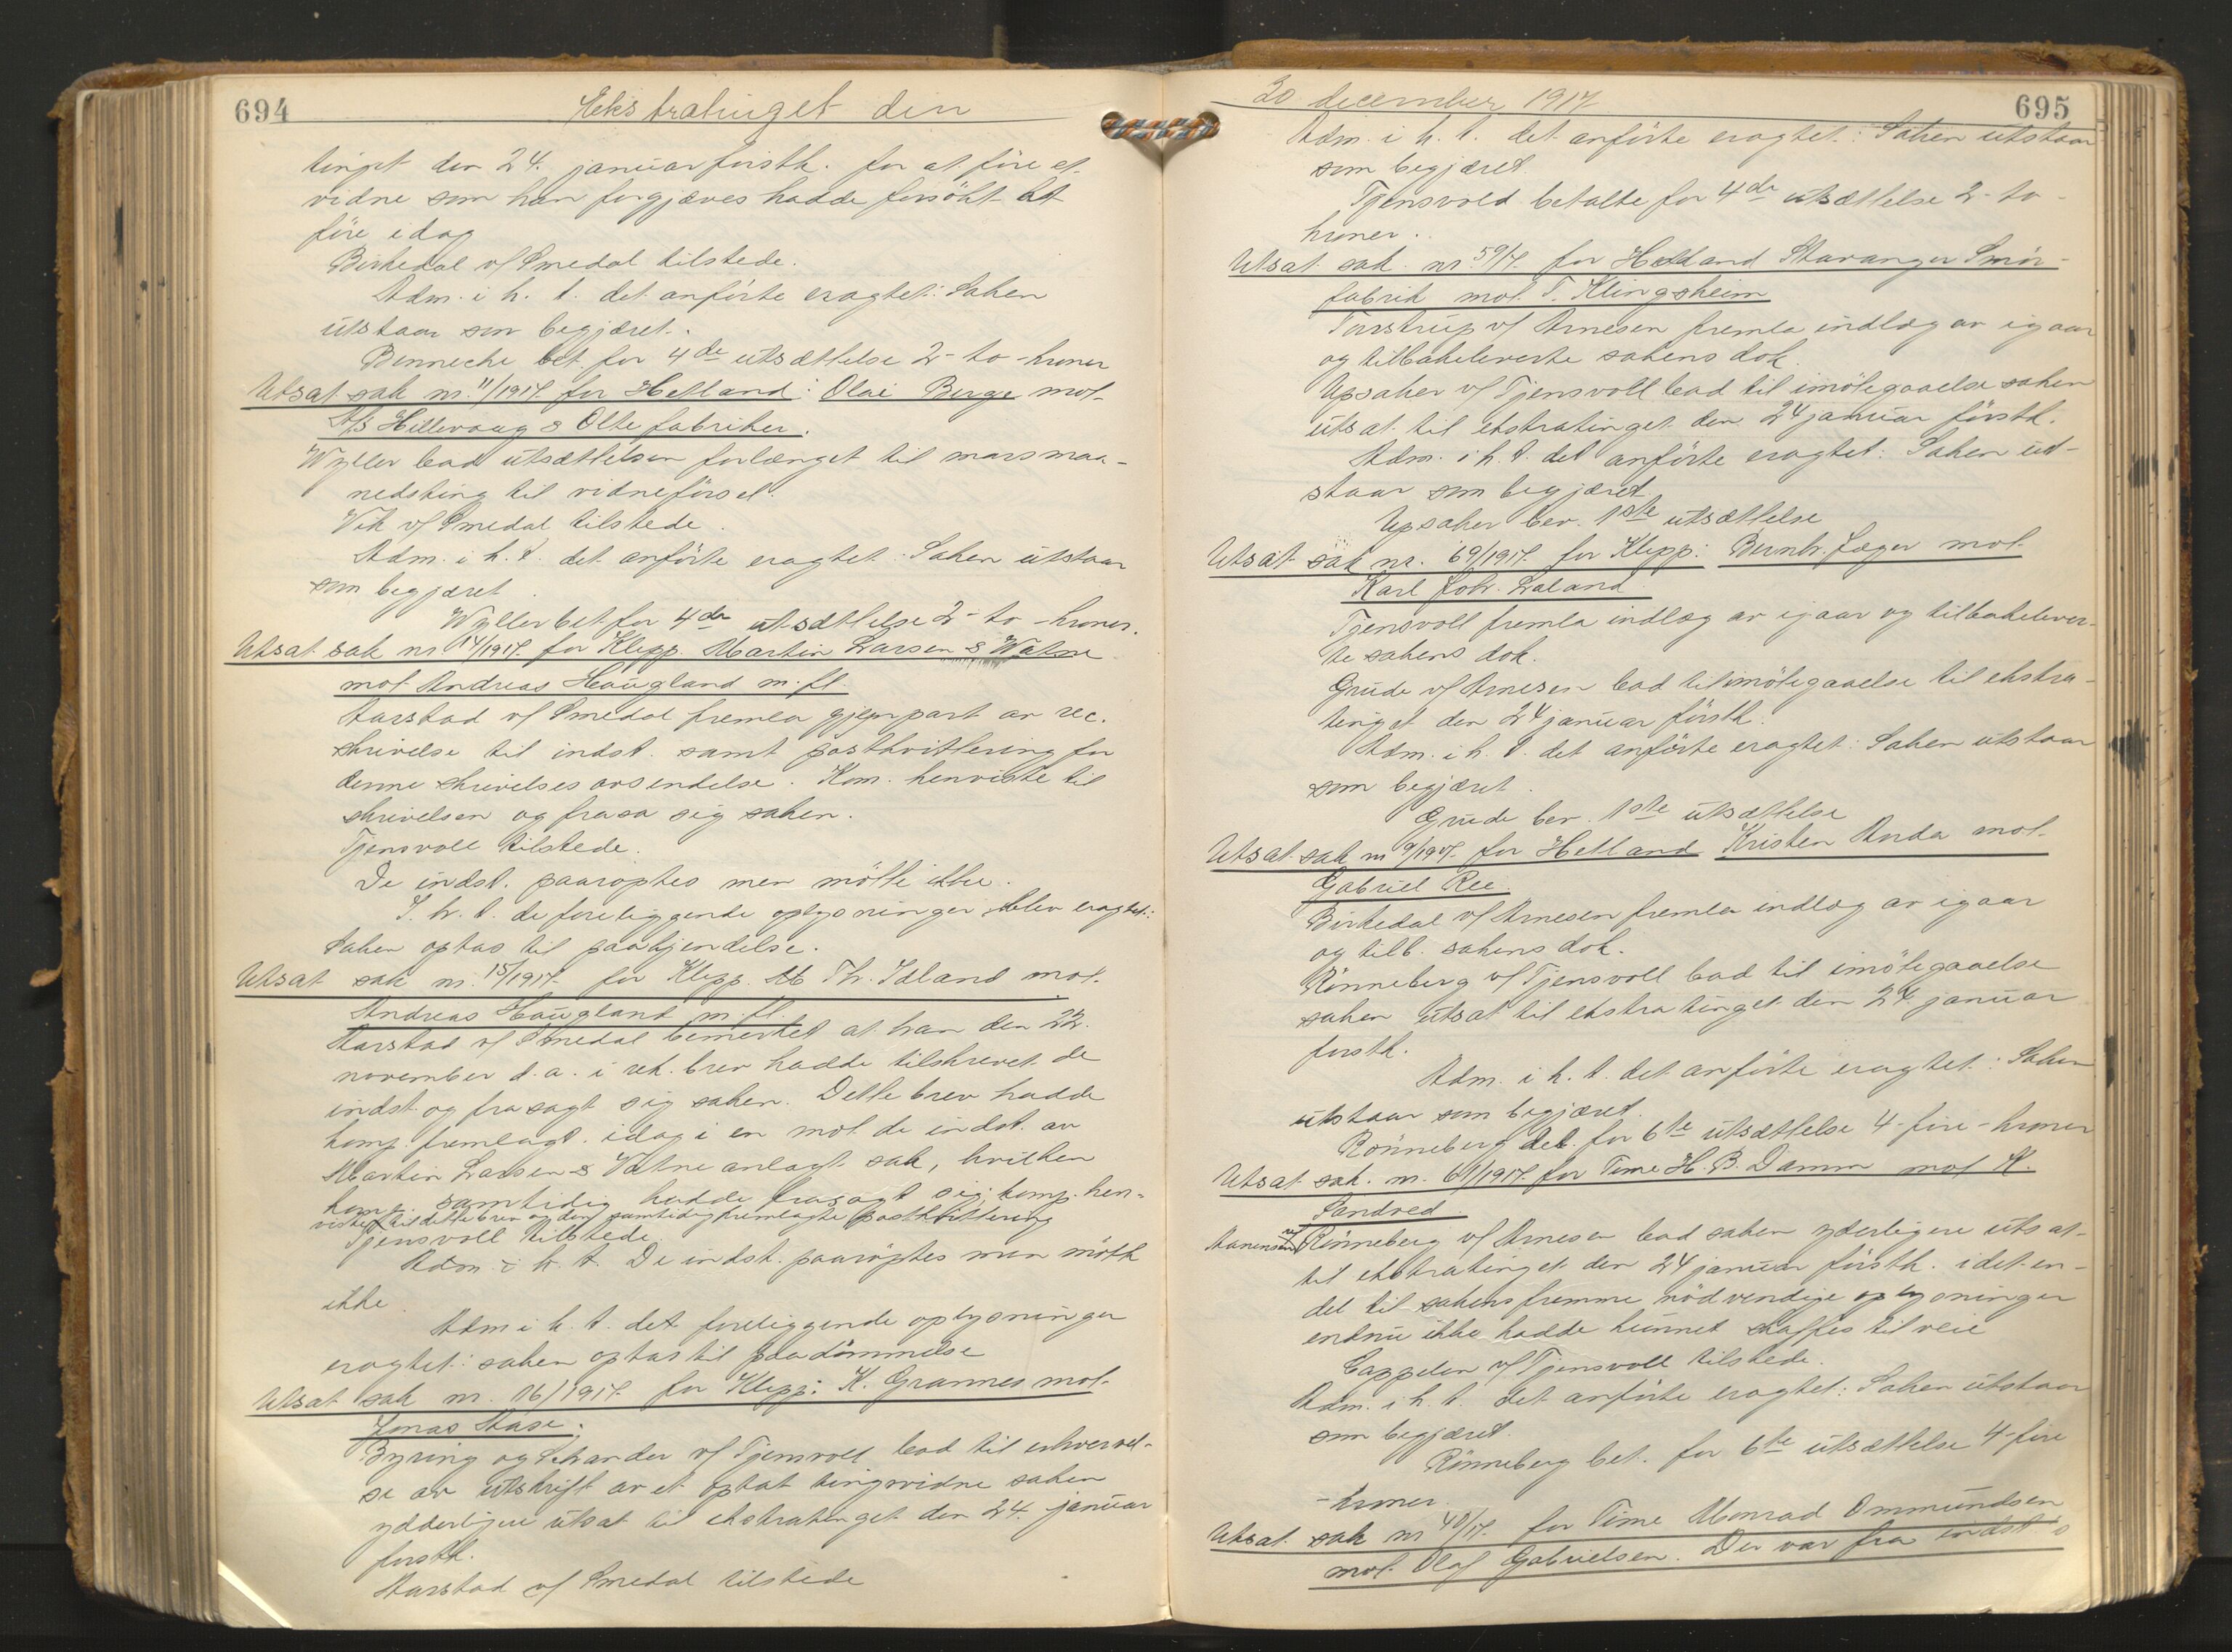 694
Ekstratinget den
tinget den 24. januar förstk. for at före et
vidne som han forgjæves hadde forsökt at
före idag
Birkedal v/ Smedal tilstede.
Adm. i h. t. det anförte eragtet: Saken
utstaar som begjæret.
Benneche bet. for 4de utsættelse 2 - to - kroner
Utsat sak nr. 11/1917 for Hetland: Olai Berge mot
A/S Hillevaag & Olte fabriker.
Wyller bad utsættelsen forlænget til marsmaa-
nedsting til vidneförsel.
Vik v/ Smedal tilstede.
Adm. i h. t. det anförte eragtet: Saken utstaar
som begjæret.
Wyller bet for 4de utsættelse 2 - to - kroner.
Utsat sak nr 14/1917 for Klepp. Martin Larsen & Watne
mot Andreas Haugland m. fl.
Aarstad v/ Smedal fremla gjenpart av rec.
skrivelse til indst. samt postkvittering for
denne skrivelses avsendelse. Kom. henviste til
skrivelsen og frasa sig saken.
Tjensvoll tilstede.
De indst. paaroptes men mötte ikke.
I. h. t. de foreliggende oplysninger blev eragtet:
Saken optas til paakjendelse.
Utsat sak nr. 15/1917 for Klepp. Th. Idland mot
Andreas Haugland m. fl.
Aarstad v/ Smedal bemerket at han den 22.
november d. a. i rek. brev hadde tilskrevet de
indst. og frasagt sig saken. Dette brev hadde
komp. fremlagt idag i en mot de indst. av
Martin Larsen & Vatne anlagt sak, hvilken
komp. samtidig hadde frasagt sig; komp. hen-
viste til dette brev og den samtidig fremlagte postkvittering
Tjensvoll tilstede.
Adm. i h. t. De indst. paaroptes men mötte
ikke.
Adm i h. t. det foreliggende oplysninger
eragtet: saken optas til paadömmelse
Utsat sak nr. 16/1917 for Klepp: K. Grannes mot
Jonas Aase.
Byring og Schander v/ Tjensvoll bad til erhvervel-
se av utskrift av et optat tingsvidne saken
ydderligere utsat til ekstratinget den 24. januar
forstk.
Aarstad v/ Smedal tilstede
30 december 1917
695
Adm. i h. t. det anförte eragtet: Saken utstaar
som begjæret.
Tjensvold betalte for 4de utsættelse 2 - to -
kroner.
Utsat sak nr 59/17 for Hetland Stavanger Smör-
fabrik mot T. Klingsheim
Torstrup v/ Arnesen fremla indlæg av igaar
og tilbakeleverte sakens dok.
Upsaker v/ Tjensvoll bad til imötegaaelse saken
utsat til ekstratinget den 24 januar förstk.
Adm. i h. t. det anförte eragtet: Saken ut-
staar som begjæret.
Upsaker bev. 1ste utsættelse
Utsat sak nr. 69/1917 for Klepp: Bernh. Jæger mot
Karl Joh. Laland
Tjensvoll fremla indlæg av igaar og tilbakelever-
te sakens dok.
Grude v/ Arnesen bad til imötegaaelse til ekstra-
tinget den 24 januar förstk.
Adm. i h. t. det anförte eragtet: Saken utstaar
som begjæret.
Grude bev. 1ste utsættelse
Utsat sak nr 9/1917 for Hetland Kristen Anda mot
Gabriel Ree.
Birkedal v/ Arnesen fremla indlæg av igaar
og tilb. sakens dok.
Rönneberg v/ Tjensvoll bad til imötegaaelse
saken utsat til ekstratinget den 24 januar
forstk.
Adm. i h. t. det anförte eragtet: Saken
utstaar som begjæret.
Rönneberg bet. for 6te utsættelse 4 - fire - kroner
Utsat sak. nr. 61/1917 for Time H. B. Damm mot K.
Sandved.
Rönneberg v/ Arnesen bad saken yderligere utsat
til ekstratinget den 24 januar förstk. idet en-
del til sakens fremme nödvendige oplysninger
endnu ikke hadde kunnet skaffes tilveie
Cappelen v/ Tjensvoll tilstede.
Adm. i h. t. det anförte eragtet: Saken utstaar
som begjæret.
Rönneberg bet. for 6te utsættelse 4 - fire
- kroner.
Utsat sak nr 40/17 for Time Monrad Ommundsen
mot Olaf Gabrielsen. Der var fra indst's